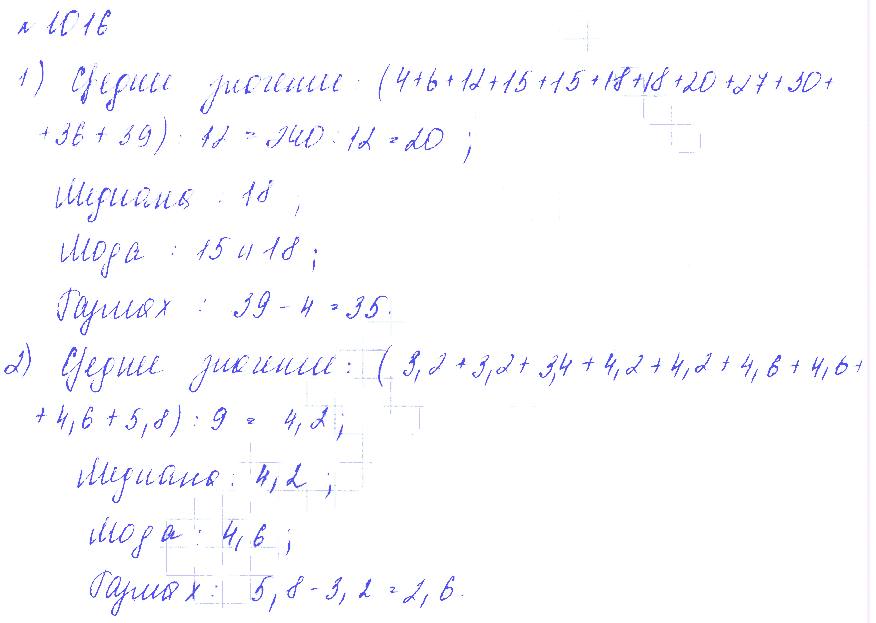 № 1016
1) Среднее значение: (4+6+12+15+15+18+18+20+27+30+
+36+39) : 12 = 240 : 12 = 20 ;
Медиана : 18 ;
Мода : 15 и 18 ;
Размах : 39 - 4 = 35.
2) Среднее значение: ( 3,2 + 3,2 + 3,4 + 4,2 + 4,2 + 4,6 + 4,6 +
+ 4,6 + 5,8) : 9 = 4,2 ;
Медиана : 4,2 ;
Мода : 4,6 ;
Размах : 5,8 - 3,2 = 2,6.